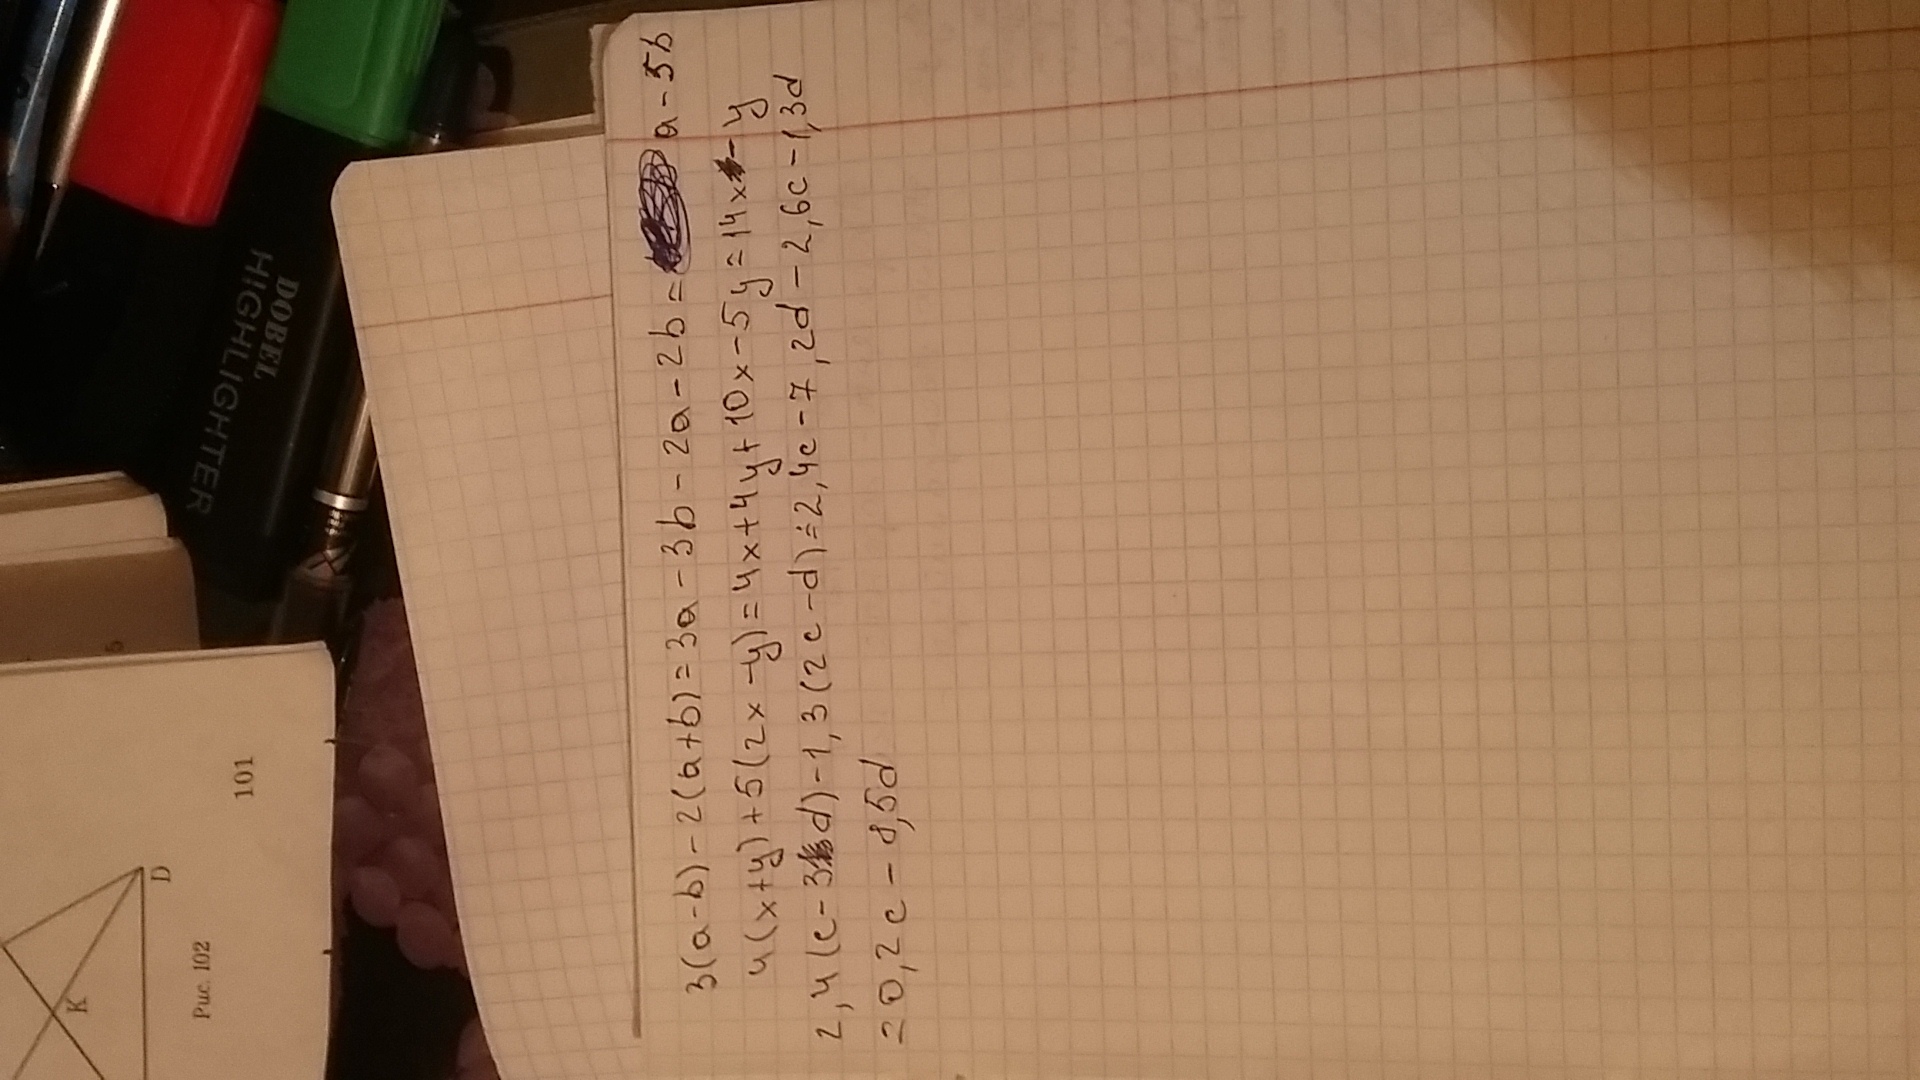 3(a-b)-2(a+b)=3a-3b-2a-2b= a-5b
4(x+y)+5(2x-y)=4x+4y+10x-5y=14x-y
2,4(c-3d)-1,3(2c-d)=2,4c-7,2d-2,6c-1,3d
=0,2c-8,5d
DOBEL
HIGHLIGHTER
K
D
Рис. 102
101